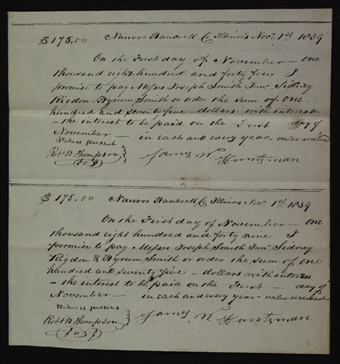 $175.00 Nauvoo Hancock C Illinois Novr 1st 1839
On the First day of November — one
thousand eight hundred and forty four I
promise to pay Messrs Joseph Smith Junr Sidney
Rigdon, Hyrum Smith or order the sum of one
hundred and Seventy five — dollars with interest
— the interest to be paid on the First day of
November — in each and every year value received
Witness present
Robt B. Thompson James W. Huntsman
$175.00 Nauvoo Hancock C, Illinois Novr 1st 1839
On the First day of November — one
thousand eight hundred and forty nine I
promise to pay Messrs Joseph Smith Junr Sidney
Rigdon & Hyrum Smith or order the sum of one
hundred and Seventy five — dollars with interest
— the interest to be paid on the First — day of
November — in each and every year value received
Witness present
Robt B Thompson James W. Huntsman